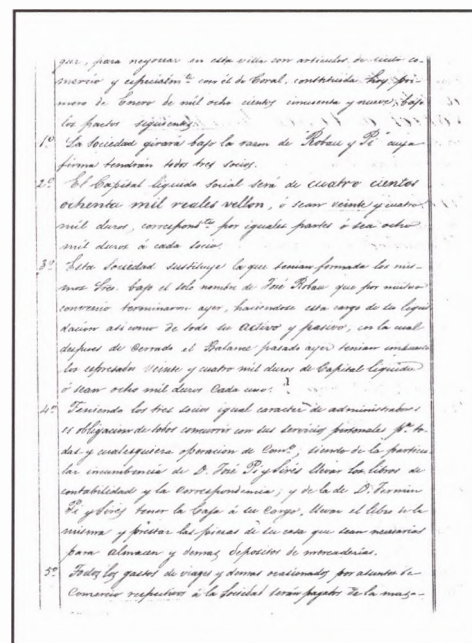 gui, para negociar en esta villa con artículos de licito co-
mercio y especialmte con él de Coral, constituida hoy pri-
mero de Enero de mil ocho cientos cincuenta y nueve, bajo
los pactos siguientes.
1º La Sociedad girará bajo la razon de Robau y Pi cuya
firma tendrán todos tres socios.
2º El Capital líquido social será de cuatro cientos
ochenta mil reales vellon, ó sean veinte y cuatro
mil duros, correspondte por iguales partes ó sea ocho
mil duros á cada socio.
3º Esta Sociedad sustituye la que tenian formada los mis-
mos Sres. bajo el solo nombre de José Robau que por mútuo
convenio terminaron ayer, haciendose esta cargo de su liqui
dacion asi como de todo su activo y pasivo, en la cual
despues de cerrado el Balance pasado ayer tenian
los espresados veinte y cuatro mil duros de Capital liquido
ó sean ocho mil duros cada uno.
4º Teniendo los tres socios igual caracter de administradores
es obligacion de todos concurrir con sus servicios personales pa to-
das y cualesquiera operacion de Como, siendo de la particu
lar incumbencia de D. José Pi y Sirés llevar los libros de
contabilidad y la correspondencia; y de la de D. Fermin
Pi y Sirés tener la Caja á su Cargo, llevar el libro de la
misma y prestar las piezas de su casa que sean necesarias
para almacen y demas depositos de mercaderías.
5º Todos los gastos de viages y demas ocasionados por asuntos de
Comercio respectivos á la Sociedad serán pagados de la masa